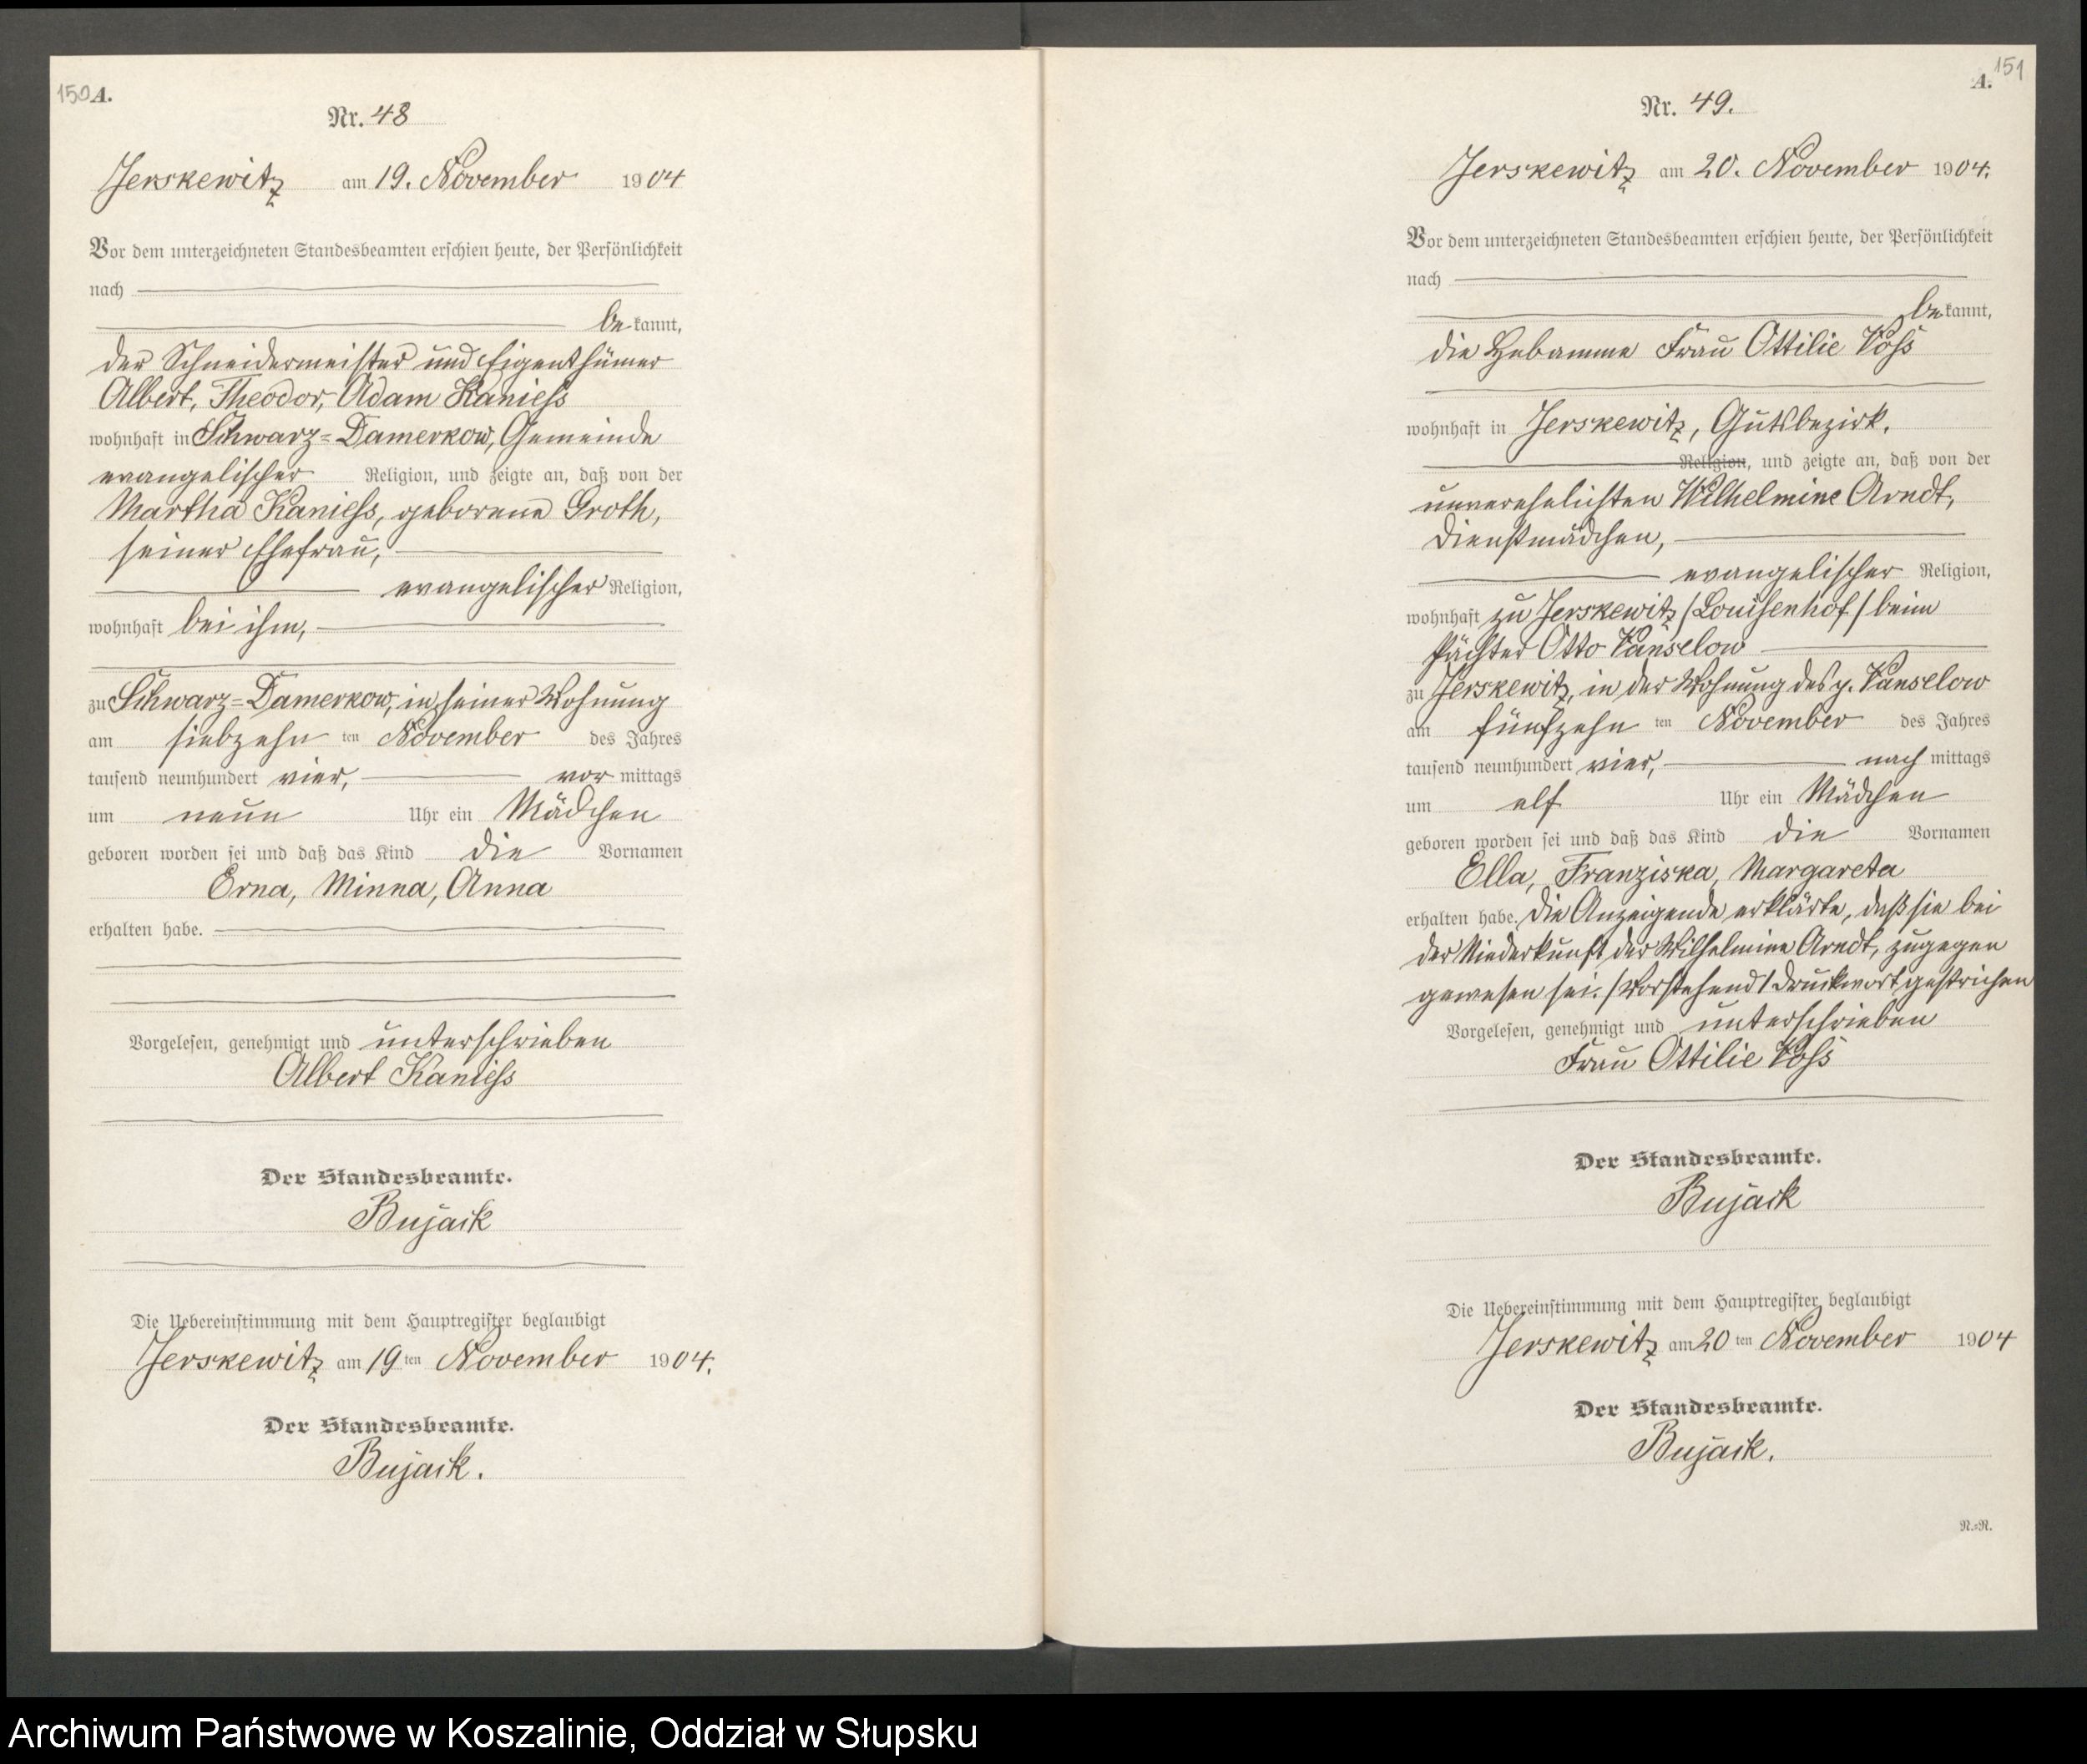 150 A.
Nr. 48
Jerskewitz am 19. November 1904
Vor dem unterzeichneten Standesbeamten erschien heute, der Persönlichkeit
nach
be kannt,
der Schneidermeister und Eigenthümer
Albert, Theodor, Adam Kaniess
wohnhaft in Schwarz=Damerkow, Gemeinde
evangelischer Religion, und zeigte an, daß von der
Martha Kaniess, geborene Groth,
seiner Ehefrau,
evangelischer Religion,
wohnhaft bei ihm,
zu Schwarz=Damerkow, in seiner Wohnung
am siebzehn ten November des Jahres
tausend neunhundert vier, vor mittags
um neun Uhr ein Mädchen
geboren worden sei und daß das Kind die Vornamen
Erna, Minna, Anna
erhalten habe.
Vorgelesen, genehmigt und unterschrieben
Albert Kaniess
Der Standesbeamte.
Bujack
Die Uebereinstimmung mit dem Hauptregister beglaubigt
Jerskewitz am 19 ten November 1904.
Der Standesbeamte.
Bujack.
A. 151
Nr. 49.
Jerskewitz am 20. November 1904.
Vor dem unterzeichneten Standesbeamten erschien heute, der Persönlichkeit
nach
be kannt,
die Hebamme Frau Ottilie Voss
wohnhaft in Jerskewitz, Gutsbezirk.
Religion, und zeigte an, daß von der
unverehelichten Wilhelmine Arndt,
Dienstmädchen,
evangelischer Religion,
wohnhaft zu Jerskewitz /Louisenhof/ beim
Pächter Otto Vanselow
zu Jerskewitz, in der Wohnung des p. Vanselow
am fünfzehn ten November des Jahres
tausend neunhundert vier, nach mittags
um elf Uhr ein Mädchen
geboren worden sei und daß das Kind die Vornamen
Ella, Franziska, Margareta
erhalten habe. Die Anzeigende erklärte, daß sie bei
der Niederkunft der Wilhelmine Arndt, zugegen
gewesen sei. /Vorstehend 1 Druckwort gestrichen
Vorgelesen, genehmigt und unterschrieben
Frau Ottilie Voss
Der Standesbeamte.
Bujack
Die Uebereinstimmung mit dem Hauptregister beglaubigt
Jerskewitz am 20 ten November 1904
Der Standesbeamte.
Bujack.
N.=N.
Archiwum Państwowe w Koszalinie, Oddział w Słupsku